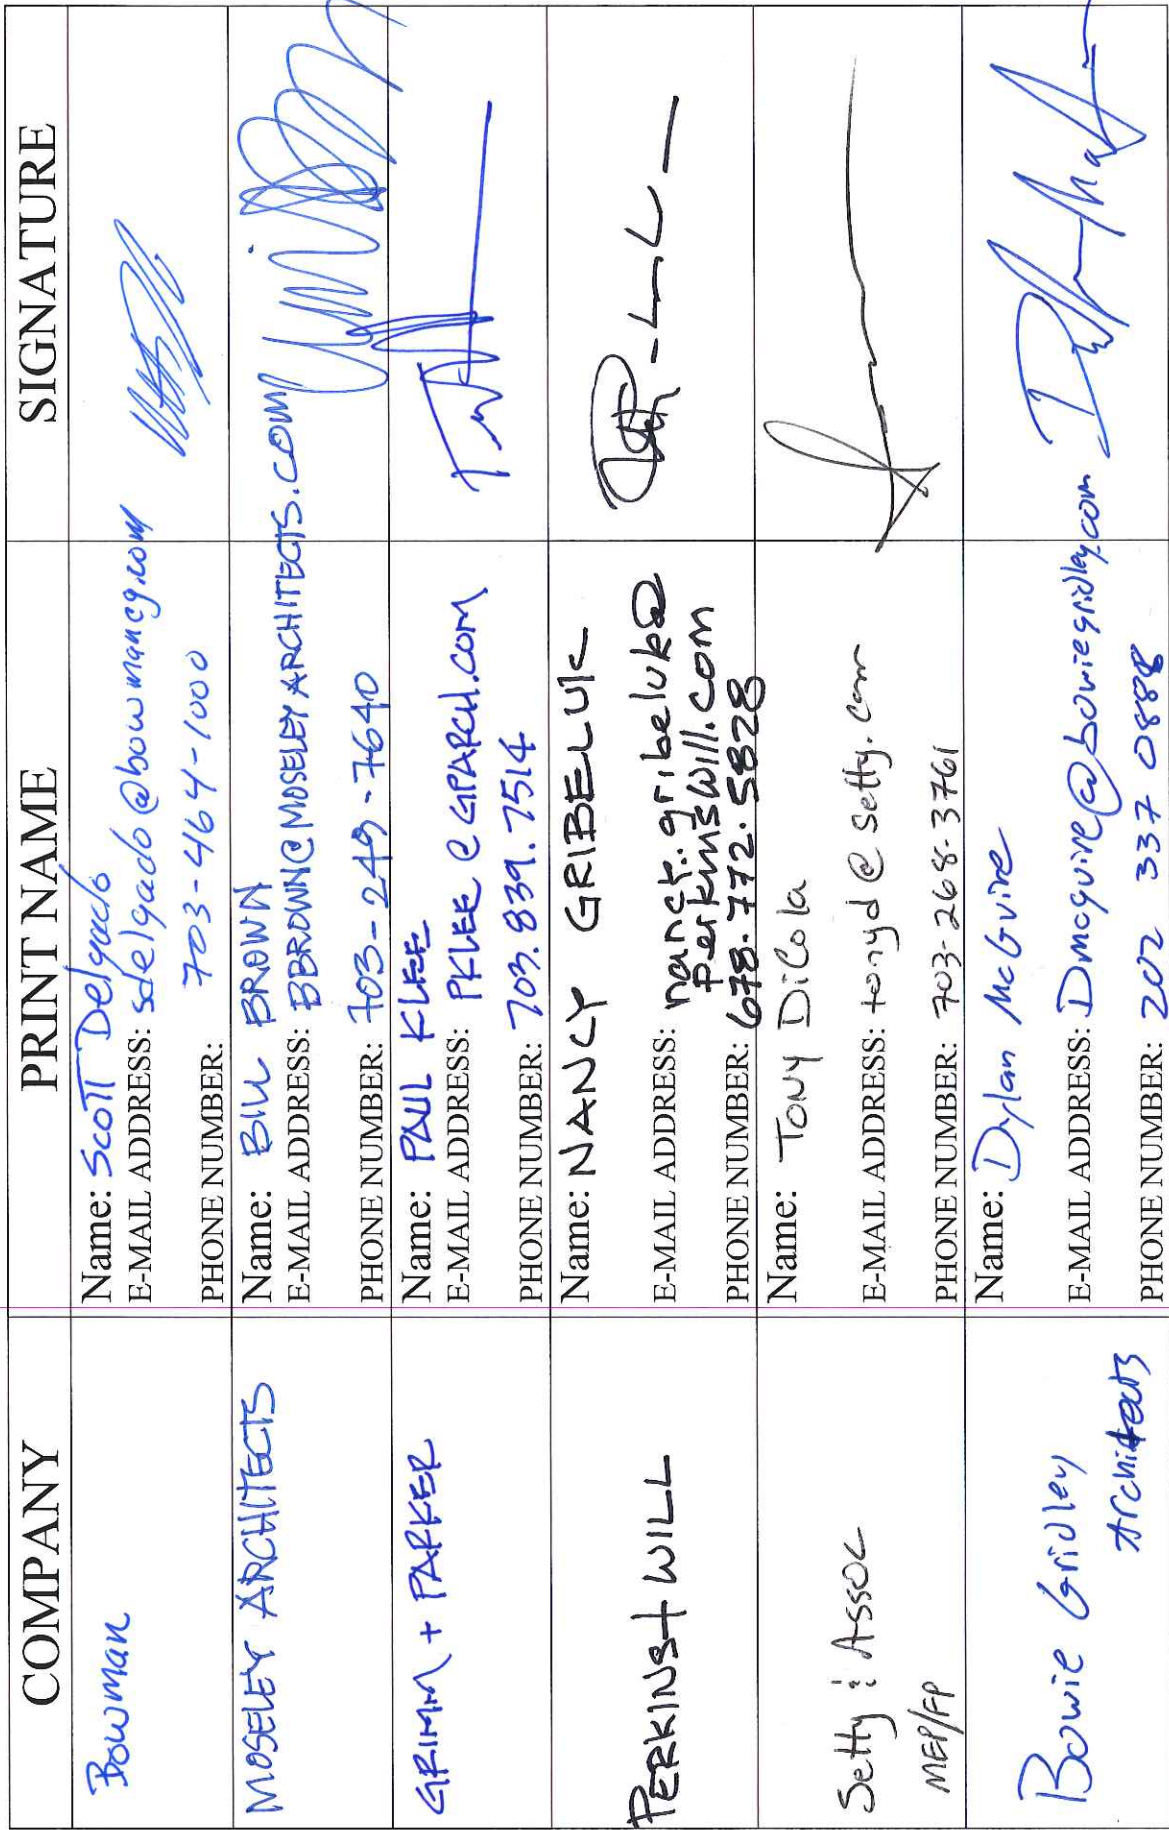 COMPANY PRINT NAME SIGNATURE
Bowman
Name: Scott Delgado
E-MAIL ADDRESS: sdelgado@bowmancg.com
703-464-1000
PHONE NUMBER:
MOSELEY ARCHITECTS
Name: BILL BROWN
E-MAIL ADDRESS: BBROWN@MOSELEYARCHITECTS.COM
PHONE NUMBER: 703-249-7640
GRIMM + PARKER
Name: PAUL KLEE
E-MAIL ADDRESS: PKLEE@GPARCH.COM
PHONE NUMBER: 703.839.7514
PERKINS+WILL
Name: NANCY GRIBELUK
E-MAIL ADDRESS: nancy.gribeluk@
perkinswill.com
PHONE NUMBER: 678.772.5828
Setty & Assoc
MEP/FP
Name: TONY DiCola
E-MAIL ADDRESS: tonyd@setty.com
PHONE NUMBER: 703-268-3761
Bowie Gridley
Architects
Name: Dylan McGuire
E-MAIL ADDRESS: Dmcguire@bowiegridley.com
PHONE NUMBER: 202 337 0888